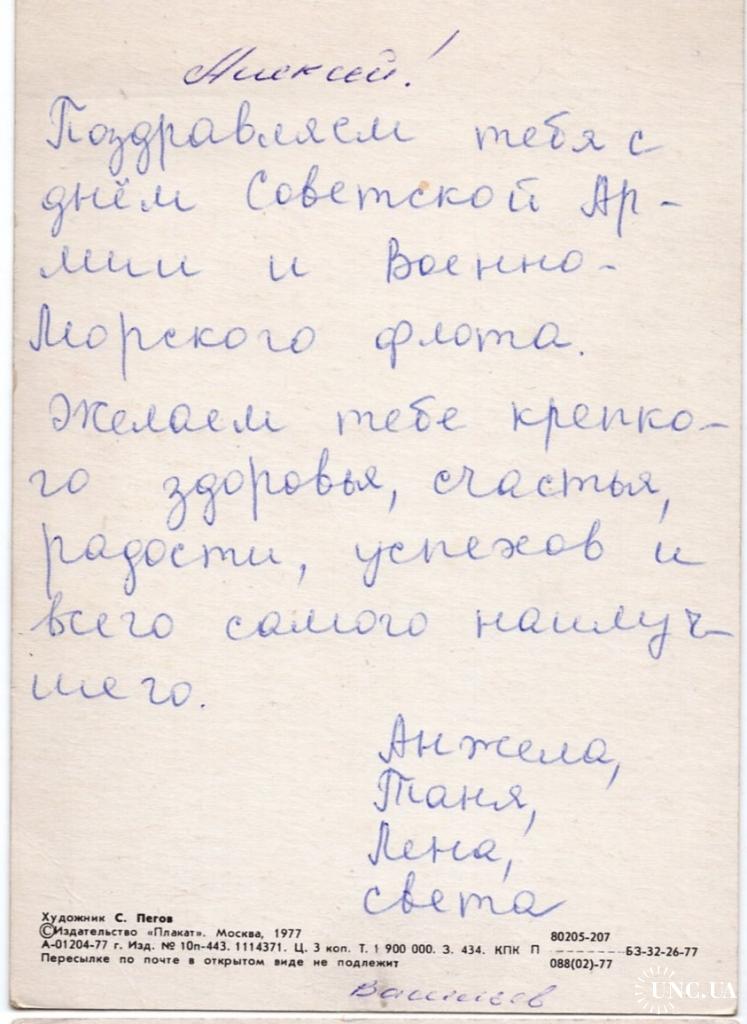 Алексей!
Поздравляем тебя с
днём Советской Ар-
мии и Военно-
Морского флота.
Желаем тебе крепко-
го здоровья, счастья,
радости, успехов и
всего самого наилуч-
шего.
Анжела,
Таня,
Лена,
Света
Художник С. Пегов
©Издательство «Плакат». Москва, 1977
А-01204-77 г. Изд. № 10п-443. 1114371. Ц. 3 коп. Т. 1 900 000. З. 434. КПК П 80205-207 / 088(02)-77 БЗ-32-26-77
Пересылке по почте в открытом виде не подлежит
UNC.UA